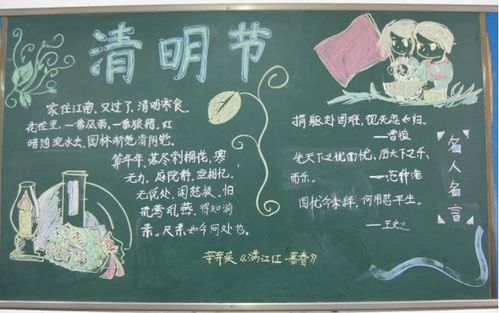 清明节
家住江南,又过了,清明寒食,
花径里,一番风雨,一番狼籍。红
暗随流水去,园林渐觉清阴密。
算年年,落尽刺桐花,寒
无力。庭院静,空相忆,
无说处,闲愁极。怕
流莺乳燕,得知消
息。尺素如今何处也。
辛弃疾《满江红·暮春》
捐躯赴国难,视死忽如归。
——曹植
先天下之忧而忧,后天下之乐
而乐。 ——范仲淹
国忧今未释,何用慰平生。
名人名言